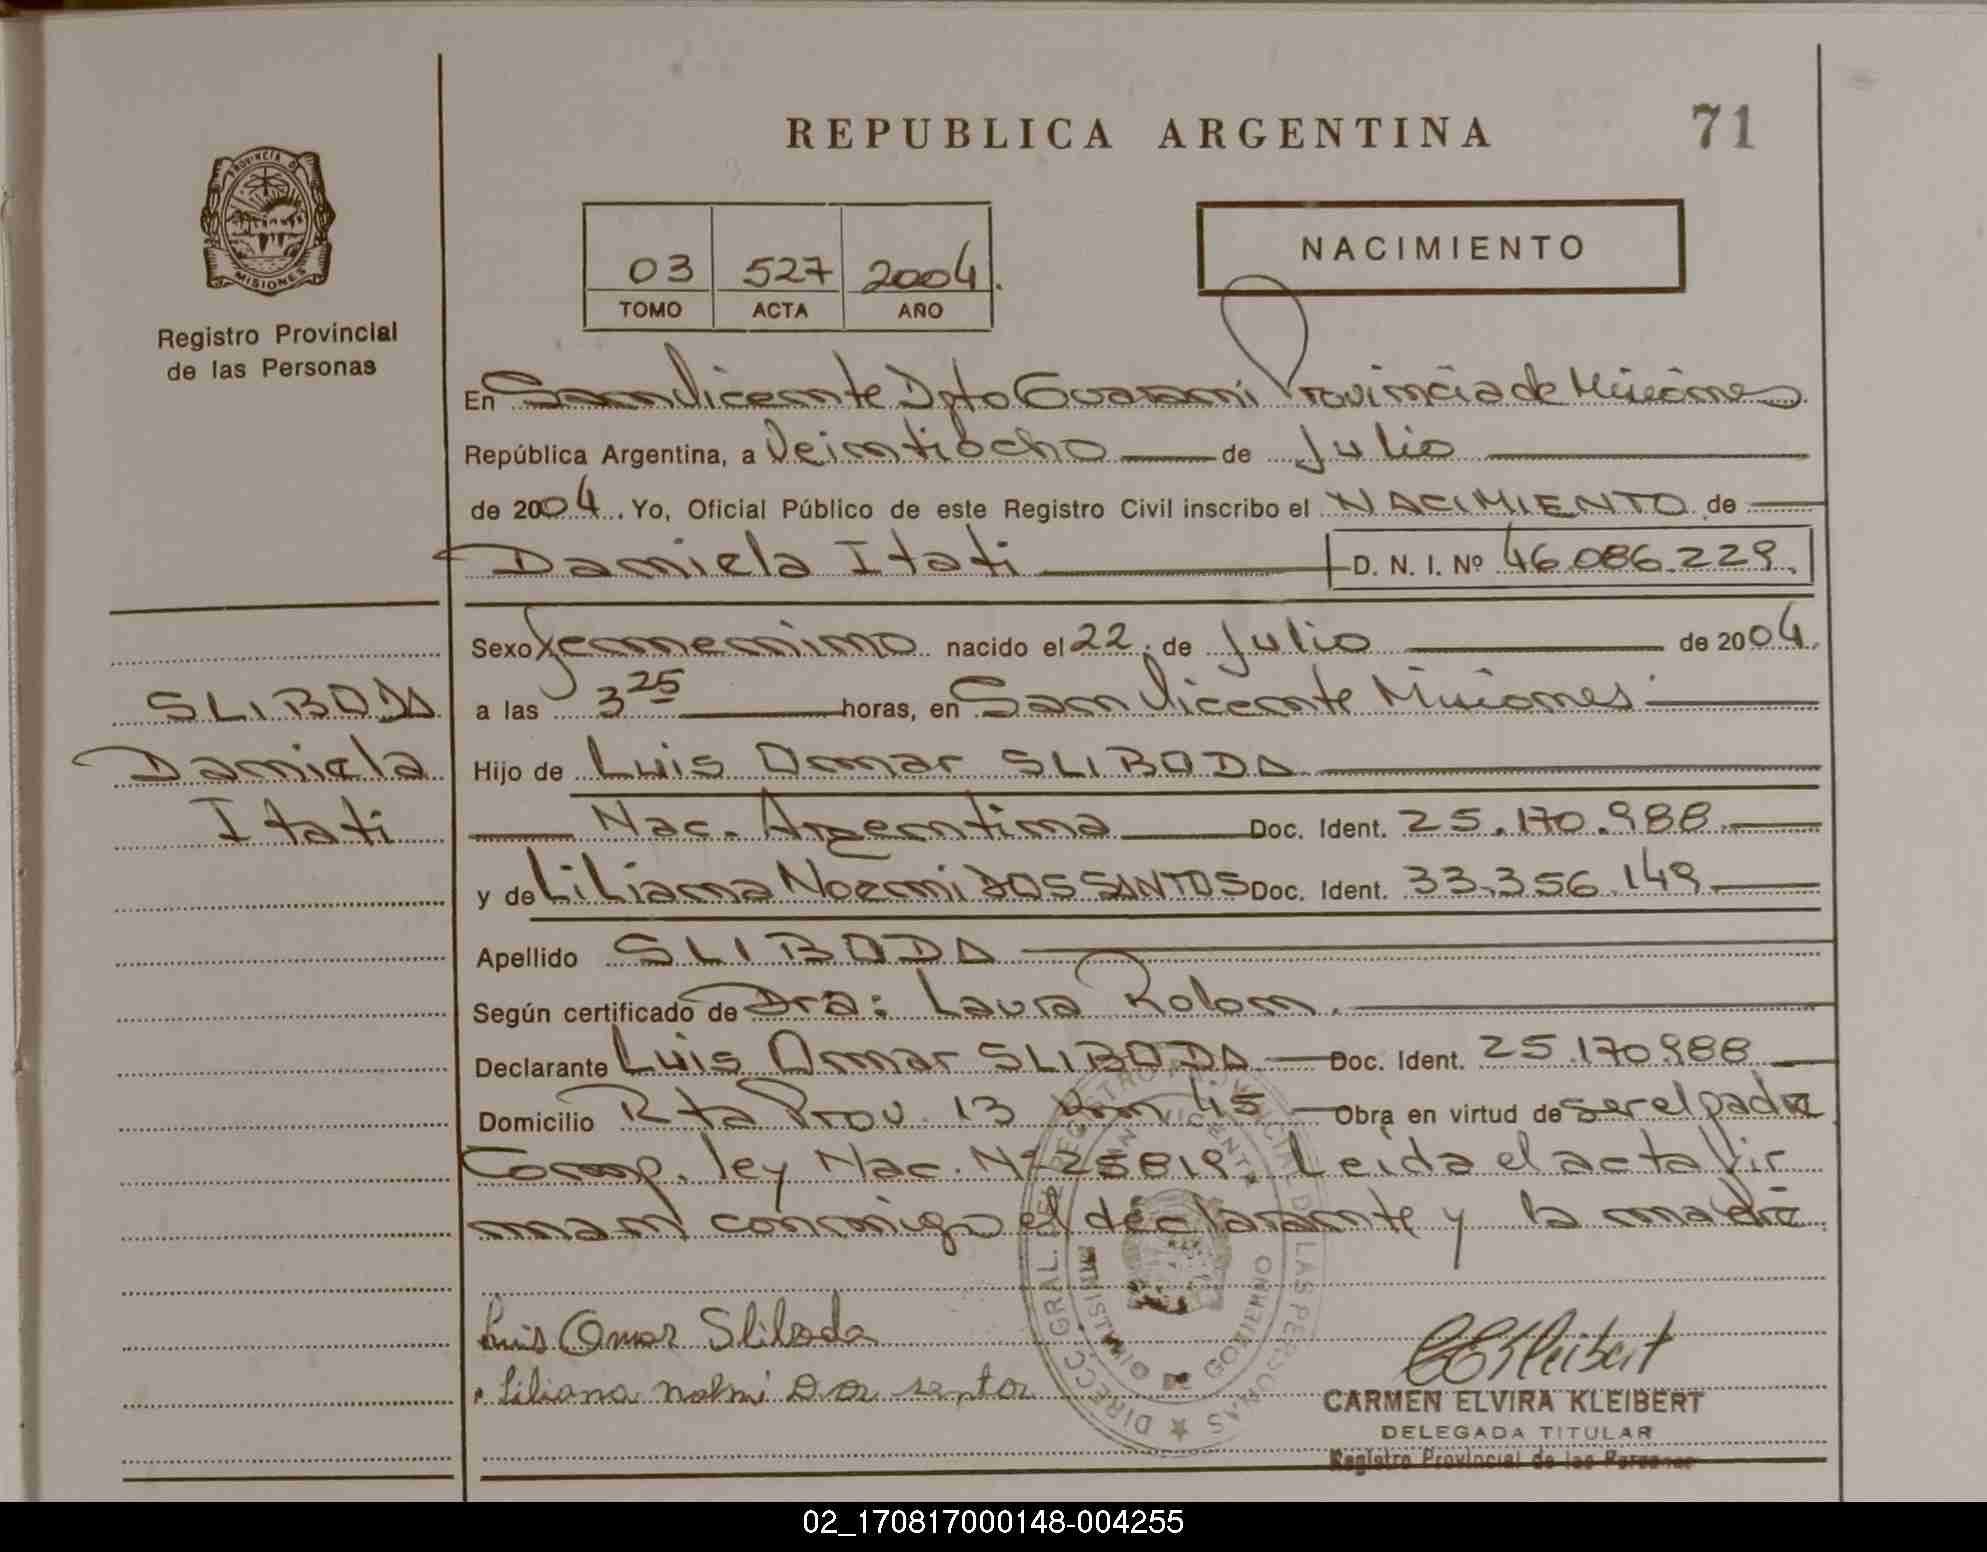 REPUBLICA ARGENTINA
71
PROVINCIA DE
MISIONES
Registro Provincial
de las Personas
03 527 2004.
TOMO ACTA AÑO
NACIMIENTO
En San Vicente Dpto Guarani Provincia de Misiones
República Argentina, a Veintiocho de Julio
de 2004. Yo, Oficial Público de este Registro Civil inscribo el NACIMIENTO de
Daniela Itati D. N. I. Nº 46.086.229.
Sexo femenino nacido el 22 de Julio de 2004.
a las 3 25 horas, en San Vicente Misiones
Hijo de Luis Omar SLIBODA
Nac. Argentina Doc. Ident. 25.170.988
y de Liliana Noemi DOS SANTOS Doc. Ident. 33.356.149
Apellido SLIBODA
Según certificado de Dra: Laura Rolon.
Declarante Luis Omar SLIBODA Doc. Ident. 25.170.988
Domicilio Rta Prov. 13 Km 45 Obra en virtud de ser el padre
Comp. ley Nac. Nº 25819. Leida el acta fir
man conmigo el declarante y la madre
SLIBODA
Daniela
Itati
Luis Omar Sliboda
Liliana Noemi Dos santos
CEKleibert
CARMEN ELVIRA KLEIBERT
DELEGADA TITULAR
Registro Provincial de las Personas
DIRECC. GRAL. DEL REGISTRO PROVINCIAL DE LAS PERSONAS
SAN VICENTE
MINISTERIO DE GOBIERNO
02_170817000148-004255